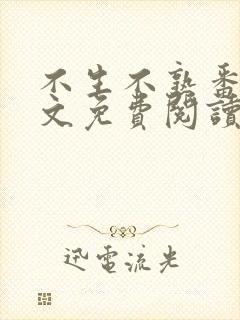 不生不熟番
文免費閱讀
迅電流光